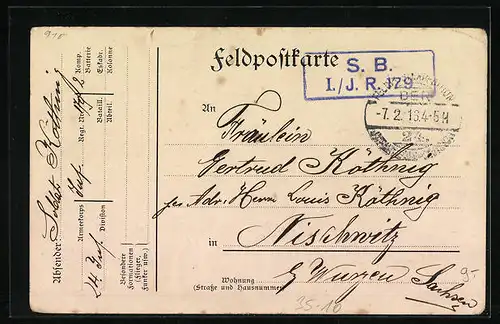 918
Feldpostkarte
S. B.
I./J. R. 179
DER
-7. 2. 16. 4-5 N
24.
An
Fräulein
Gertrud Köthnig
per Adr. Herrn Louis Köthnig
in Nischwitz
b/ Wurzen Sachsen
Wohnung
(Straße und Hausnummer)
95-
35-10
Absender: Soldat Köthnig
24 Inf. Armeekorps Division
Inf. Regt. Nr. Bataill. Abteil.
Komp. Batterie Eskadr. Kolonne
Besondere Formationen (Flieger, Funker usw.)